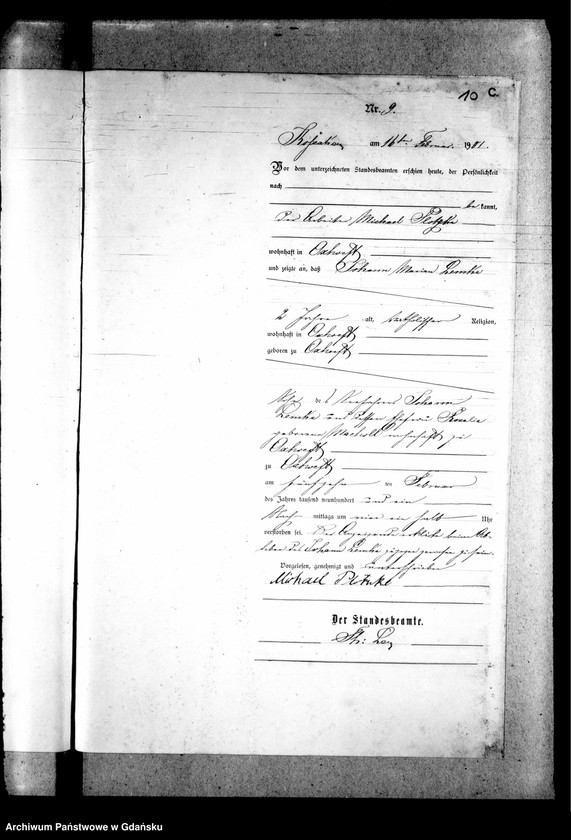 10 C.
Nr. 9.
am 16ten Februar 1901.
Vor dem unterzeichneten Standesbeamten erschien heute, der Persönlichkeit
nach
be kannt,
der Arbeiter Michael
wohnhaft in Oxhöft
und zeigte an, daß Johann Marian Lemke
2 Jahre alt, katholischer Religion,
wohnhaft in Oxhöft
geboren zu Oxhöft
Sohn des Johann
Lemke und dessen Ehefrau Rosalie
geborene wohnhaft zu
Oxhöft
zu Oxhöft
am fünfzehn ten Februar
des Jahres tausend neunhundert und ein
Nach mittags um vier ein halb Uhr
verstorben sei. Der Anzeigende erklärte beim Ab-
leben des Johann Lemke zugegen gewesen zu sein.
Vorgelesen, genehmigt und unterschrieben
Michael
Der Standesbeamte.
Archiwum Państwowe w Gdańsku